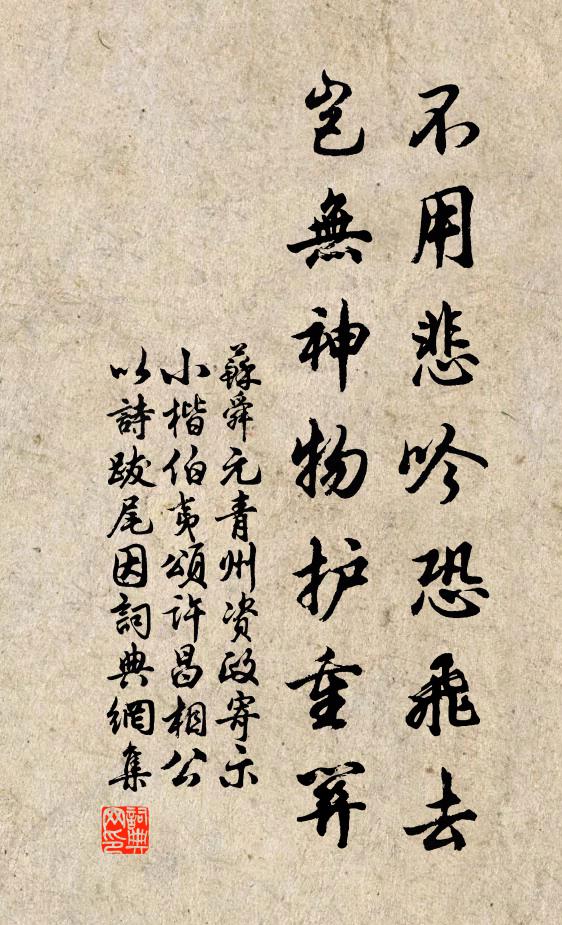 不用悲吟恐飛去
岂無神物护重關
蘇舜元青州资政寄示
小楷伯夷頌許昌相公
以詩跋尾因詞典網集
詞典
网印